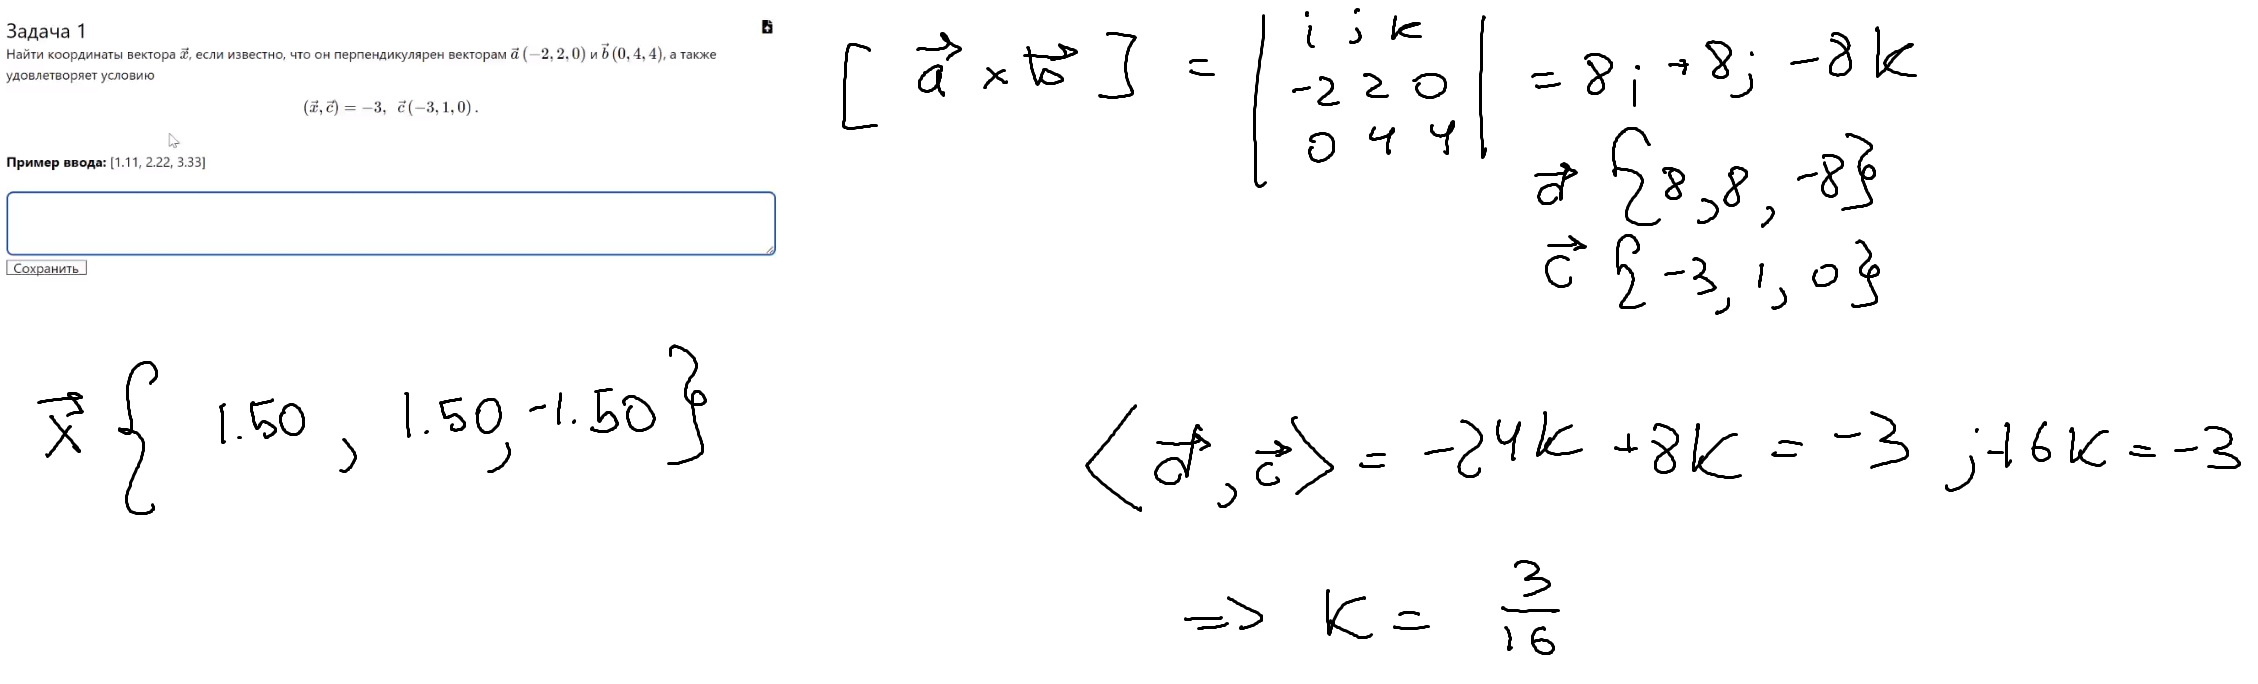 Задача 1
Найти координаты вектора x⃗, если известно, что он перпендикулярен векторам a⃗ (−2, 2, 0) и b⃗ (0, 4, 4), а также
удовлетворяет условию
(x⃗, c⃗) = −3, c⃗ (−3, 1, 0) .
Пример ввода: [1.11, 2.22, 3.33]
Сохранить
[ a⃗ × b⃗ ] = | i j k | = 8i + 8j - 8k
-2 2 0
0 4 4
d⃗ {8, 8, -8}
c⃗ {-3, 1, 0}
x⃗ { 1.50 , 1.50, -1.50 }
⟨ d⃗, c⃗ ⟩ = -24k + 8k = -3 ; -16k = -3
=> k = 3/16